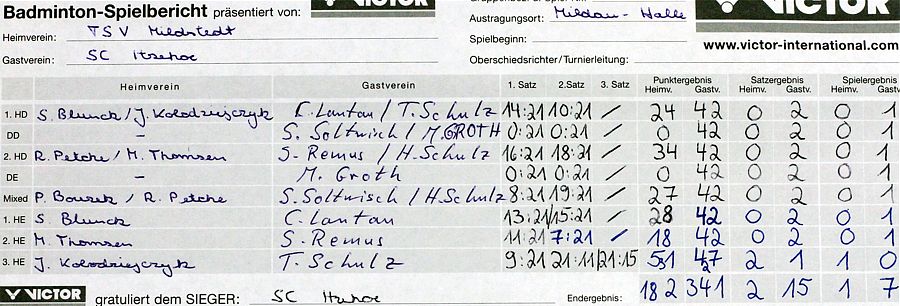 Badminton-Spielbericht präsentiert von: VICTOR
Heimverein: TSV Mildstedt
Gastverein: SC Itzehoe
Austragungsort: Mildau-Halle
Spielbeginn:
Oberschiedsrichter/Turnierleitung:
VICTOR
www.victor-international.com
Heimverein Gastverein 1. Satz 2. Satz 3. Satz Punktergebnis Heimv. Gastv. Satzergebnis Heimv. Gastv. Spielergebnis Heimv. Gastv.
1. HD S. Blunck/J. Kolodziejczyk C. Lantau/T. Schulz 14:21 10:21 / 24 42 0 2 0 1
DD – S. Soltwisch/M. GROTH 0:21 0:21 / 0 42 0 2 0 1
2. HD R. Petche/M. Thomsen S. Remus/H. Schulz 16:21 18:21 / 34 42 0 2 0 1
DE – M. Groth 0:21 0:21 / 0 42 0 2 0 1
Mixed P. / R. Petche S. Soltwisch/H. Schulz 8:21 19:21 / 27 42 0 2 0 1
1. HE S. Blunck C. Lantau 13:21 15:21 / 28 42 0 2 0 1
2. HE M. Thomsen S. Remus 11:21 7:21 / 18 42 0 2 0 1
3. HE J. Kolodziejczyk T. Schulz 9:21 21:11 21:15 51 47 2 1 1 0
VICTOR gratuliert dem SIEGER: SC Itzehoe Endergebnis: 182 341 2 15 1 7